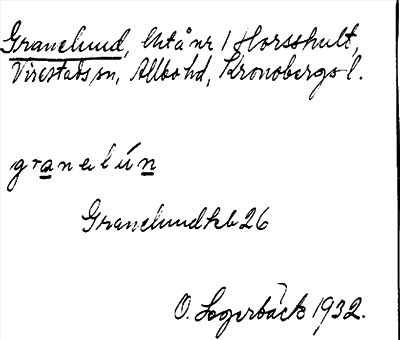 Granelund, Urå nr 1 Horsshult,
Virestads sn, Allbo hd, Kronobergs l.
granelún
Granelund hb 26
O. Sogerbäck 1932.